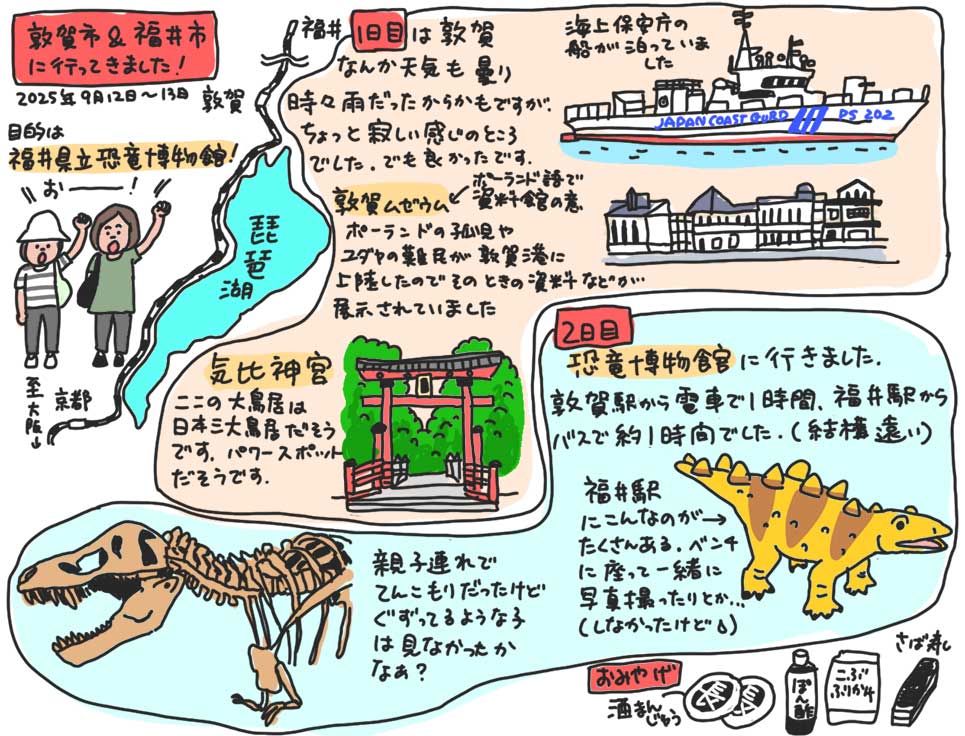 敦賀市&福井市
に行ってきました!
2025年9月12日~13日
目的は
福井県立恐竜博物館!
おー!
福井
敦賀
琵琶湖
京都
至大阪↓
1日目は敦賀
なんか天気も曇り
時々雨だったからかもですが、
ちょっと寂しい感じのところ
でした。でも良かったです。
海上保安庁の
船が泊っていま
した
JAPAN COAST GURD PS 202
敦賀ムゼウム
ポーランド語で
資料館の意
ポーランドの孤児や
ユダヤの難民が敦賀港に
上陸したのでそのときの資料などが
展示されていました
気比神宮
ここの大鳥居は
日本三大鳥居だそう
です。パワースポット
だそうです。
2日目
恐竜博物館に行きました。
敦賀駅から電車で1時間、福井駅から
バスで約1時間でした。(結構遠い)
福井駅
にこんなのが→
たくさんある。ベンチ
に座って一緒に
写真撮ったりとか…
(しなかったけど)
親子連れで
てんこもりだったけど
ぐずってるような子
は見なかったか
なぁ?
おみやげ
酒まんじゅう
ぽん酢
こぶふりかけ
さば寿し